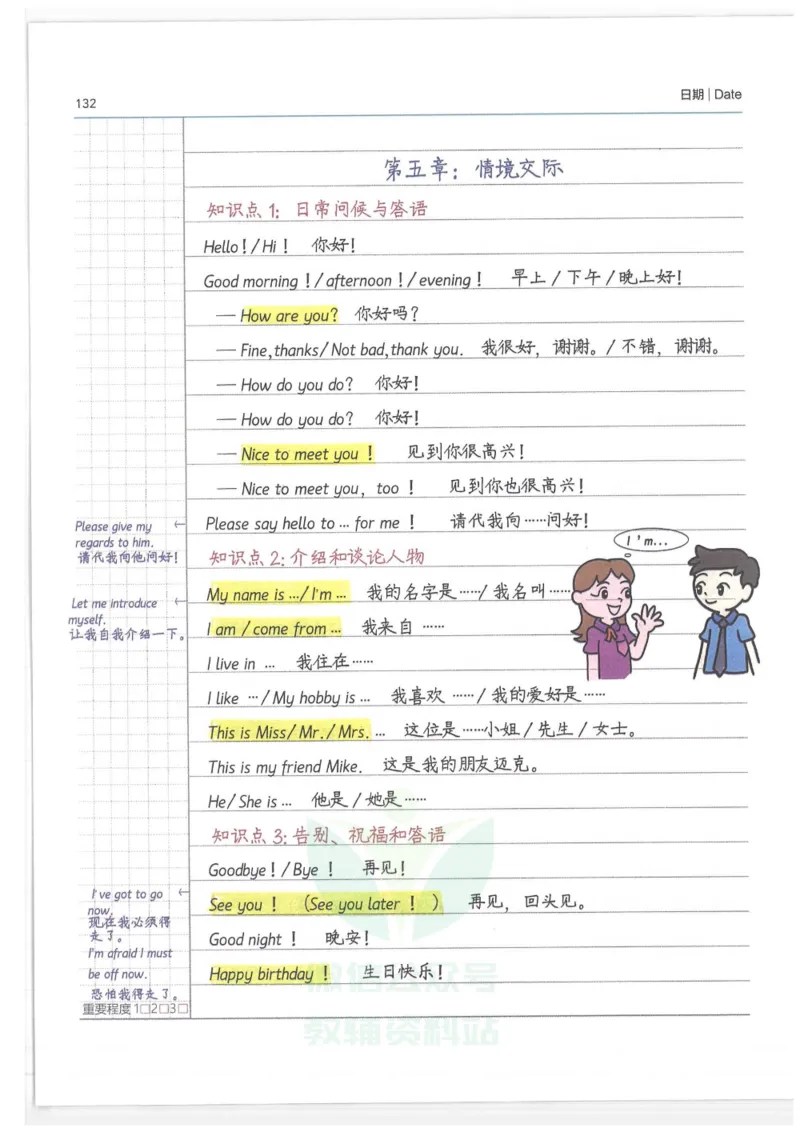 132
日期 | Date
第五章：情境交际
知识点 1：日常问候与答语
Hello！/ Hi！ 你好！
Good morning！/ afternoon！/ evening！ 早上 / 下午 / 晚上好！
— How are you? 你好吗？
— Fine,thanks/ Not bad,thank you. 我很好，谢谢。/ 不错，谢谢。
— How do you do? 你好！
— How do you do? 你好！
— Nice to meet you！ 见到你很高兴！
— Nice to meet you，too！ 见到你也很高兴！
Please give my
regards to him.
请代我向他问好！
← Please say hello to … for me！ 请代我向……问好！
I'm...
知识点 2：介绍和谈论人物
Let me introduce
myself.
让我自我介绍一下。
← My name is …/ I'm … 我的名字是……/ 我名叫……
I am / come from … 我来自 ……
I live in … 我住在……
I like …/ My hobby is … 我喜欢 ……/ 我的爱好是……
This is Miss/ Mr./ Mrs. … 这位是……小姐 / 先生 / 女士。
This is my friend Mike. 这是我的朋友迈克。
He/ She is … 他是 / 她是……
知识点 3：告别、祝福和答语
Goodbye！/ Bye！ 再见！
I've got to go
now.
现在我必须得
走了。
I'm afraid I must
be off now.
恐怕我得走了。
← See you！（See you later！） 再见，回头见。
Good night！ 晚安！
Happy birthday！ 生日快乐！
重要程度 1□2□3□
微信公众号
教辅资料站